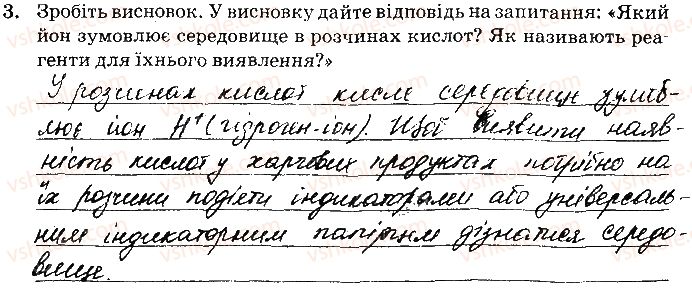 3. Зробіть висновок. У висновку дайте відповідь на запитання: «Який
йон зумовлює середовище в розчинах кислот? Як називають реа-
генти для їхнього виявлення?»
У розчинах кислот кисле середовище зумов-
лює іон H⁺ (гідроген-іон). Щоб виявити наяв-
ність кислот у харчових продуктах потрібно на
їх розчини подіяти індикаторами або універсаль-
ним індикаторним папірцем дізнатися середо-
вище.